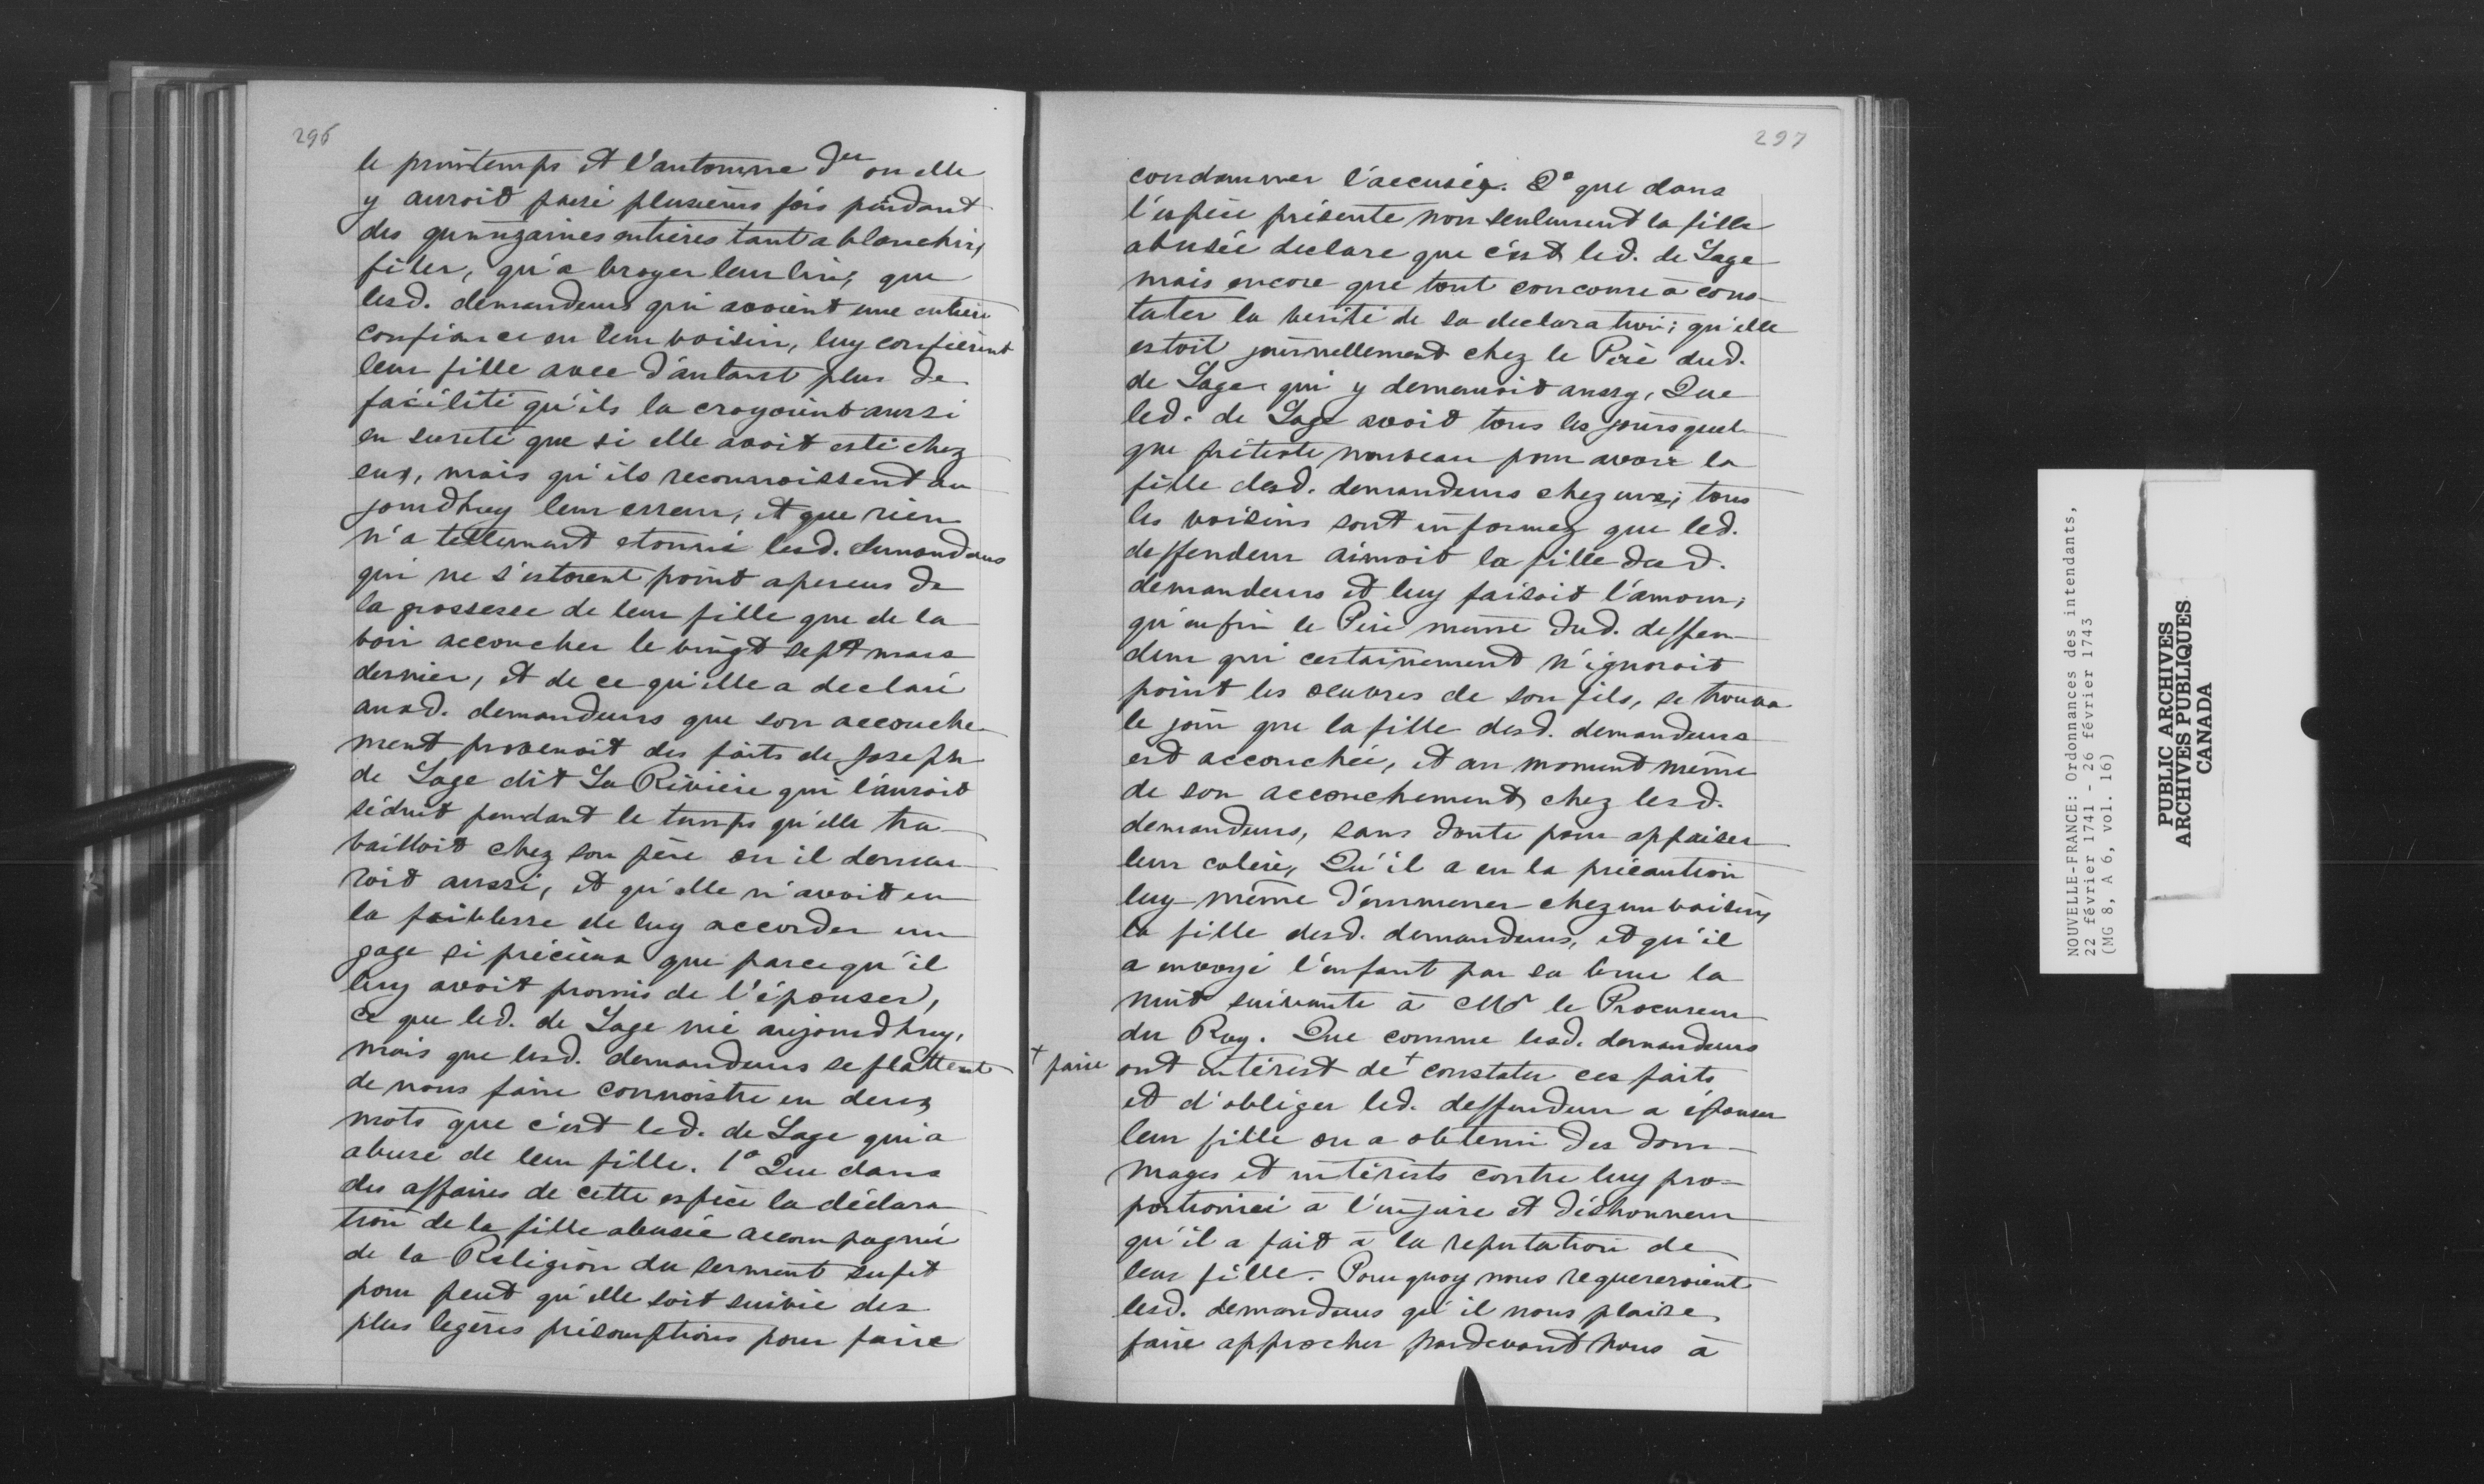 296
le printemps et l'automne der ou elle
y auroit passé plusieurs fois pendant
des quinzaines entieres tant a blanchir,
filer, qu'a broyer leur lin, que
lesd. demandeurs qui avoient une entiere
confiance en leur voisin, luy confierent
leur fille avec d'autant plus de
facilité qu'ils la croyoient aussi
en sureté que si elle avoit esté chez
eux, mais qu'ils reconnoissent au
jourdhuy leur erreur, et que rien
n'a tellement etonné lesd. demandeurs
qui ne s'estoient point aperceus de
la grossesse de leur fille que de la
voir accoucher le vingt sept mars
dernier, et de ce qu'elle a declaré
auxd. demandeurs que son accouche
ment provenoit des faits de Joseph
de Lage dit La Riviere qui l'auroit
séduit pendant le temps qu'elle tra
vailloit chez son père ou il demeu
roit aussi, et qu'elle n'avoit eu
la foiblesse de luy accorder un
gage si précieux que parcequ'il
luy avoit promis de l'épouser,
ce que led. de Lage nie aujourdhuy,
mais que lesd. demandeurs se flattent
de nous faire connoistre en deux
mots que c'est led. de Lage qui a
abusé de leur fille. 1° Que dans
des affaires de cette espèce la déclara
tion de la fille abusée accompagnée
de la Religion du serment sufit
pour peut qu'elle soit suivie des
plus legeres présomptions pour faire
297
condamner l'accusé. 2° que dans
l'espèce présente non seulement la fille
abusée declare que c'est led. de Lage
mais encore que tout concoure à cons-
tater la verité de sa declaration; qu'elle
estoit journellement chez le Père dud.
de Lage qui y demeuroit aussy, Que
led. de Lage avoit tous les jours quel
que prétexte nouveau pour avoir la
fille desd. demandeurs chez eux; tous
les voisins sont informez que led.
deffendeur aimoit la fille desd.
demandeurs et luy faisoit l'amour;
qu'enfin le Père meme dud. deffen-
deur qui certainement n'ignoroit
point les oeuvres de son fils, se trouva
le jour que la fille desd. demandeurs
est accouchée, et au moment même
de son accouchement chez lesd.
demandeurs, sans doute pour appaiser
leur colère, Qu'il a eu la précaution
luy même d'emmener chez un voisin
la fille desd. demandeurs, et qu'il
a envoyé l'enfant par sa bru la
nuit suivante à Mr le Procureur
du Roy. Que comme lesd. demandeurs
+ faire ont intérest de + constater ces faits
et d'obliger led. deffendeur a épouser
leur fille ou a obtenir des dom-
mages et intérests contre luy pro=
portionné à l'injure et déshonneur
qu'il a fait à la reputation de
leur fille. Pourquoy nous requereroient
lesd. demandeurs qu'il nous plaise
faire approcher pardevant nous à
NOUVELLE-FRANCE: Ordonnances des intendants,
22 février 1741 - 26 février 1743
(MG 8, A 6, vol. 16)
PUBLIC ARCHIVES
ARCHIVES PUBLIQUES
CANADA